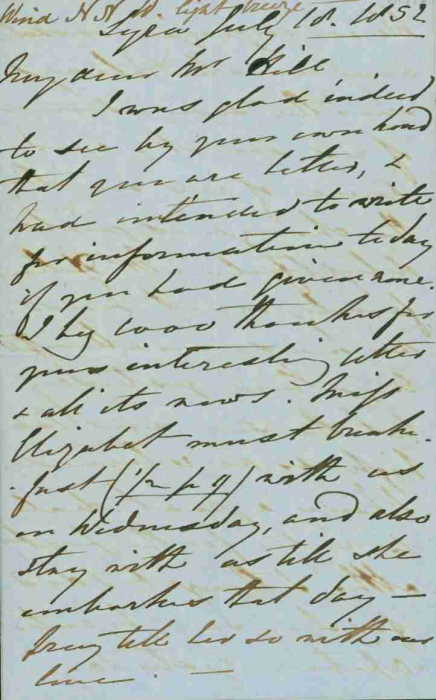 Wind N N W. light breeze
Syra July 18. 1852
My dear Mr Hill
I was glad indeed
to see by your own hand
that you are better, &
had intended to write
for information today
if you had given none.
I beg 1000 thanks for
your interesting letter
& all its news. Miss
Elizabet must break-
fast (½ p 9) with us
on Wednesday, and also
stay with us till she
embarks that day —
Pray tell her so with our
love. —